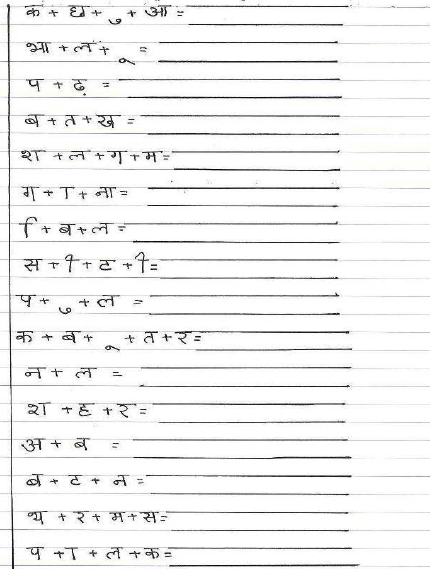 क + छ + ु + आ =
भा + ल + ू =
प + ढ़ =
ब + त + ख =
श + ल + ग + म =
ग + ा + ना =
ि + ब + ल =
स + ी + ट + ी =
प + ु + ल =
क + ब + ू + त + र =
न + ल =
श + ह + र =
अ + ब =
ब + ट + न =
थ + र + म + स =
प + ा + ल + क =